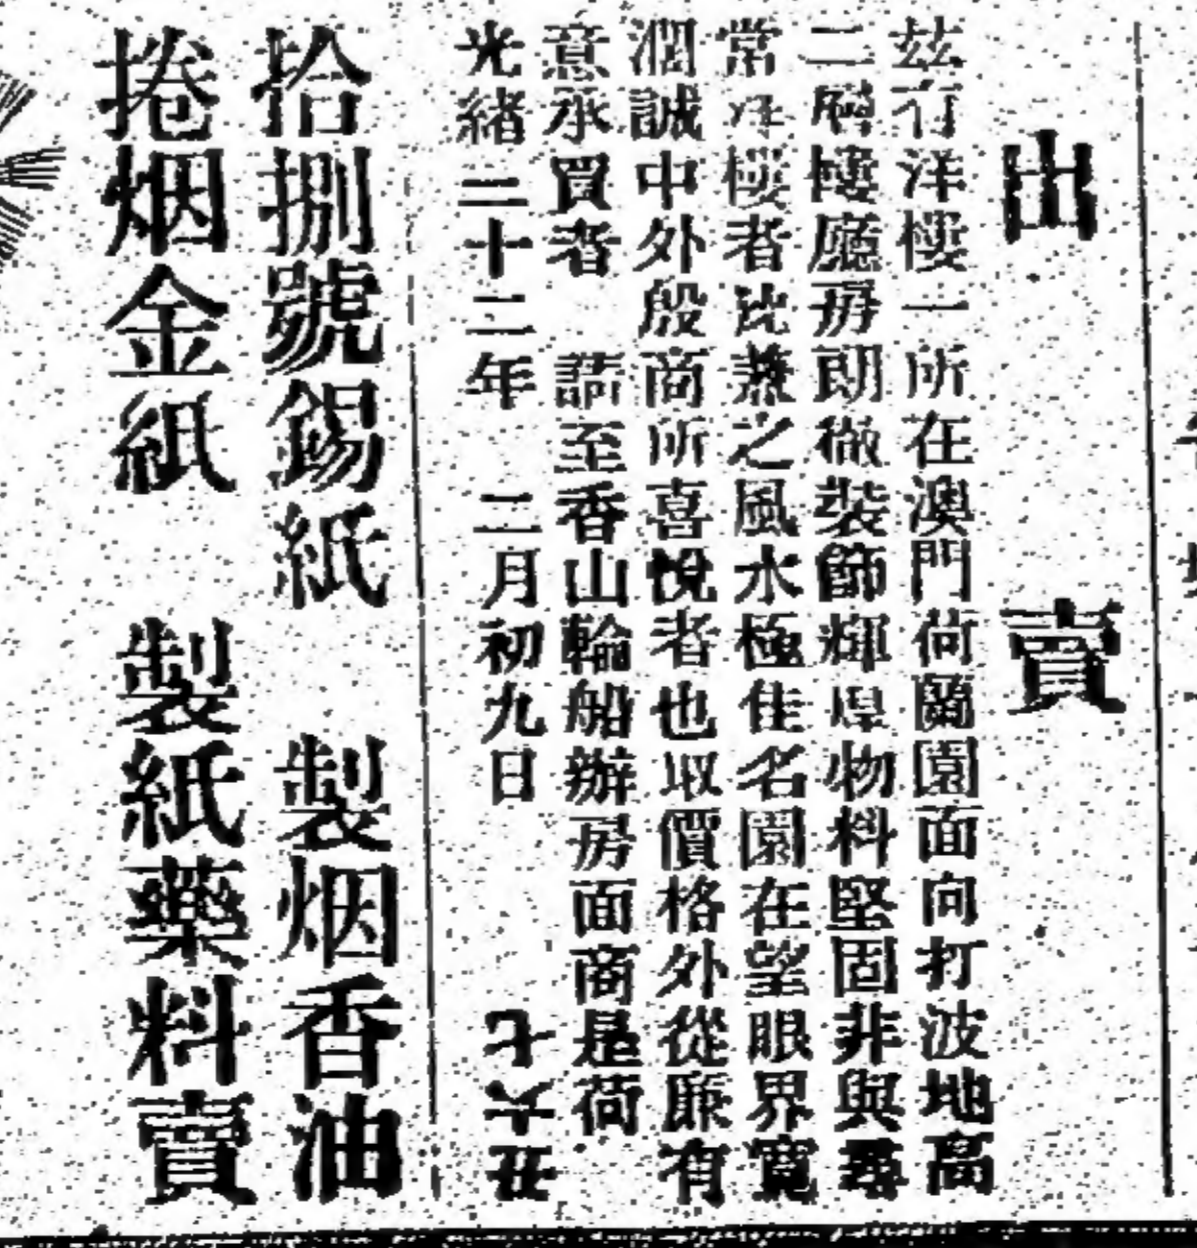 出賣
茲有洋樓一所在澳門荷蘭園面向打波地高
二層樓廳房朗徹裝飾輝煌物料堅固非與尋
常洋樓者比兼之風水極佳名園在望眼界寬
濶誠中外殷商所喜悅者也取價格外從廉有
意承買者 請至香山輪船辦房面商是荷
光緒二十二年 二月初九日
拾捌號錫紙 製烟香油
捲烟金紙 製紙藥料賣